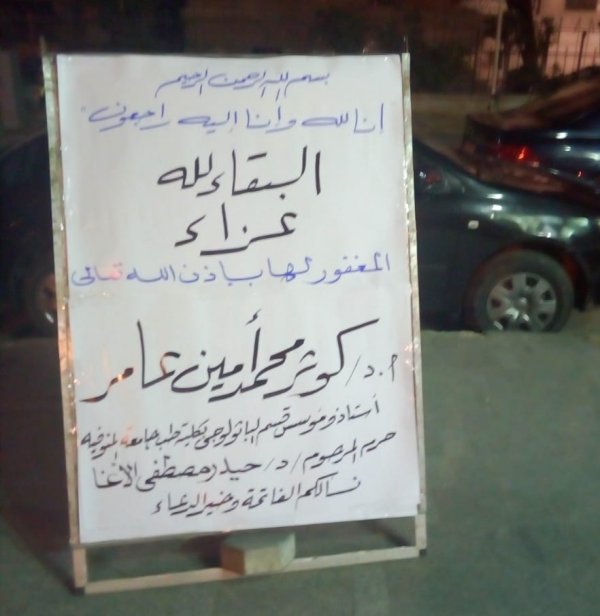 بسم الله الرحمن الرحيم
"إنا لله وإنا إليه راجعون"
البقاء لله
عزاء
المغفور لها بإذن الله تعالى
أ.د/ كوثر محمد أمين عامر
أستاذ ومؤسس قسم الباثولوجى بكلية طب جامعة المنوفية
حرم المرحوم/ د/ حيدر مصطفى الأغا
نسألكم الفاتحة وخير الدعاء